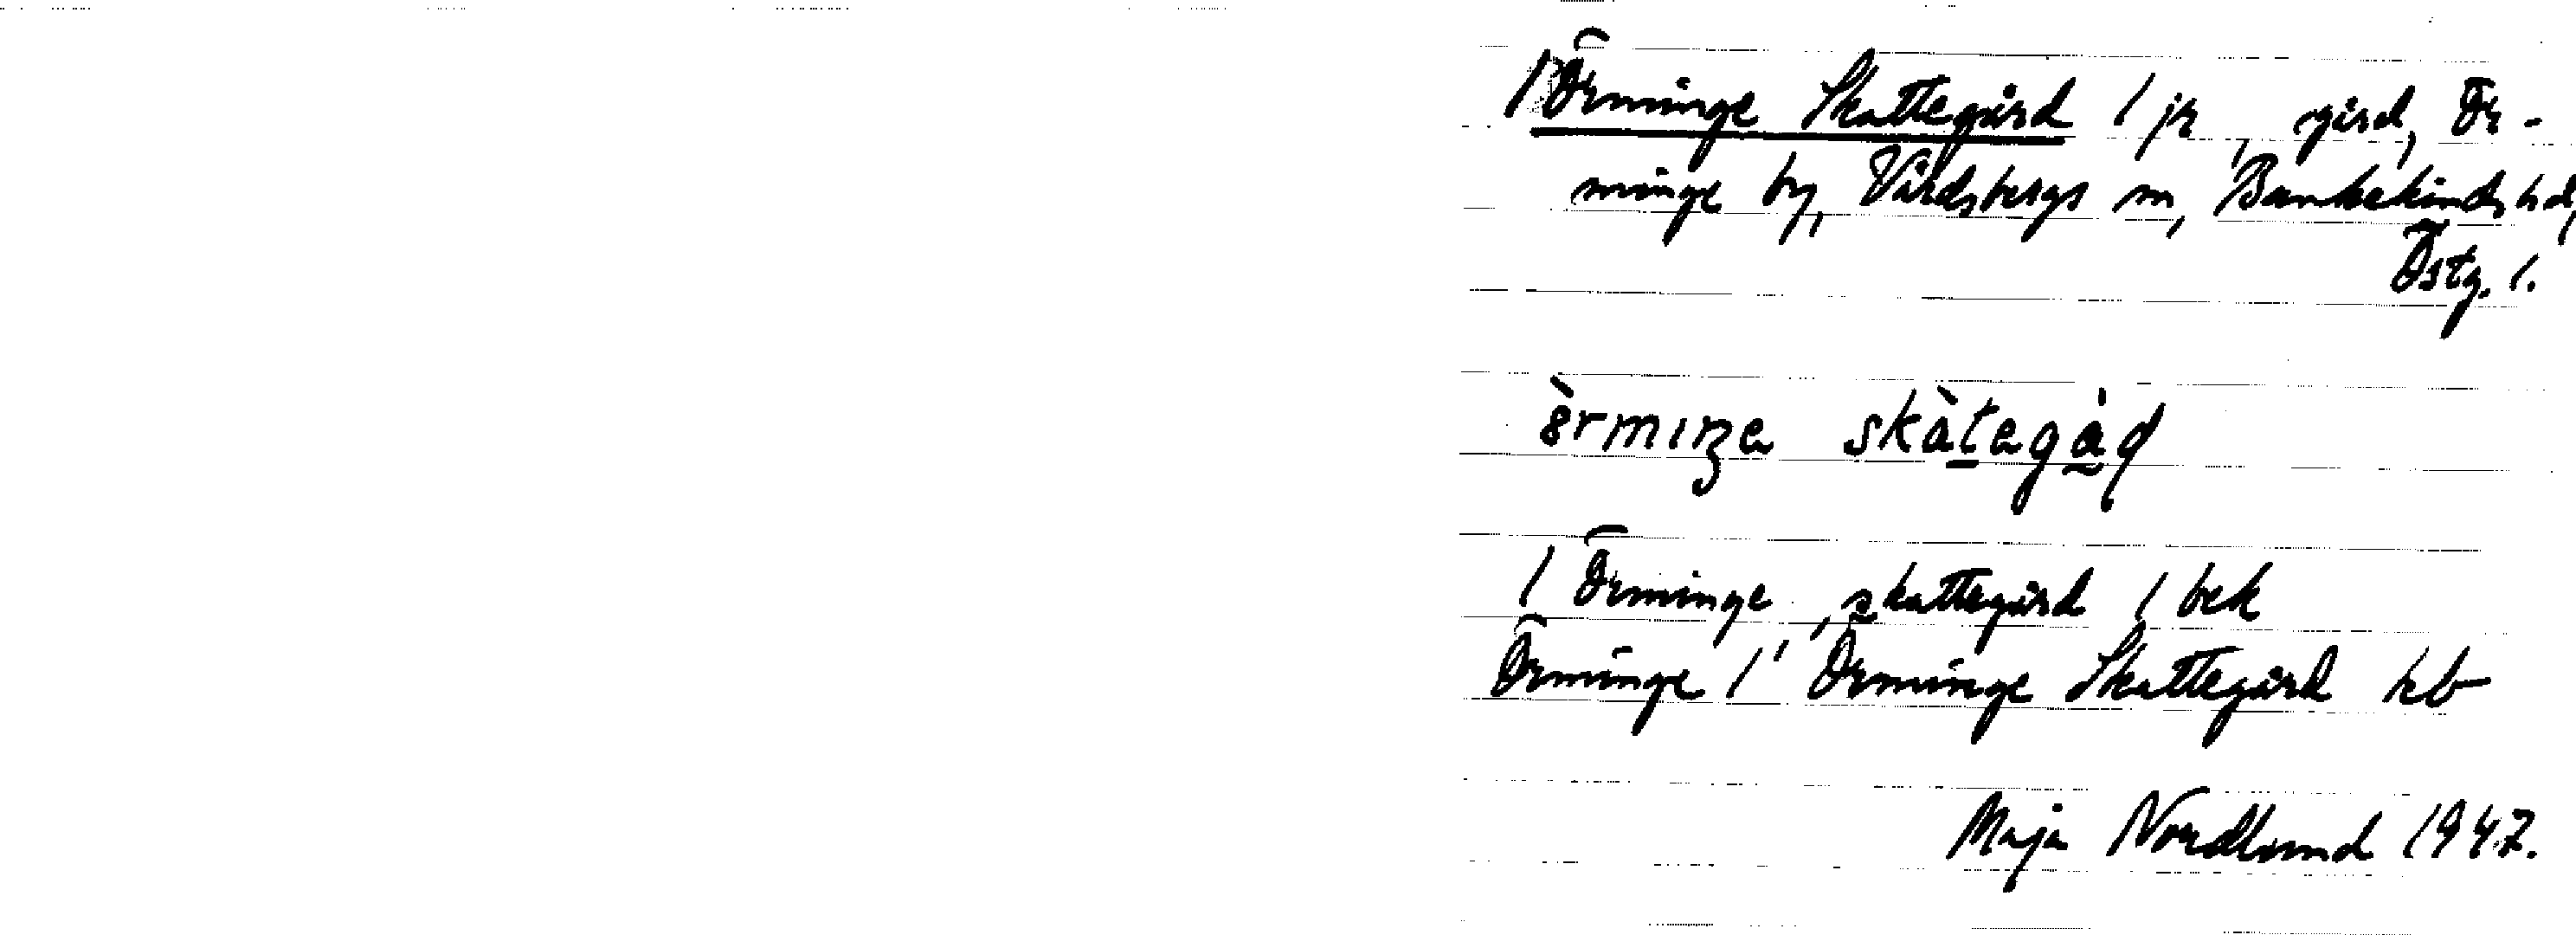 /Örminge Skattegård / jr, gård, Ör-
minge by, Vårdsbergs sn, Bankekinds hd,
Östg. l.
skàtegàd
/ Örminge, skattegård / bek
Örminge /' Örminge Skattegård kb
Maja Nordlund 1947.